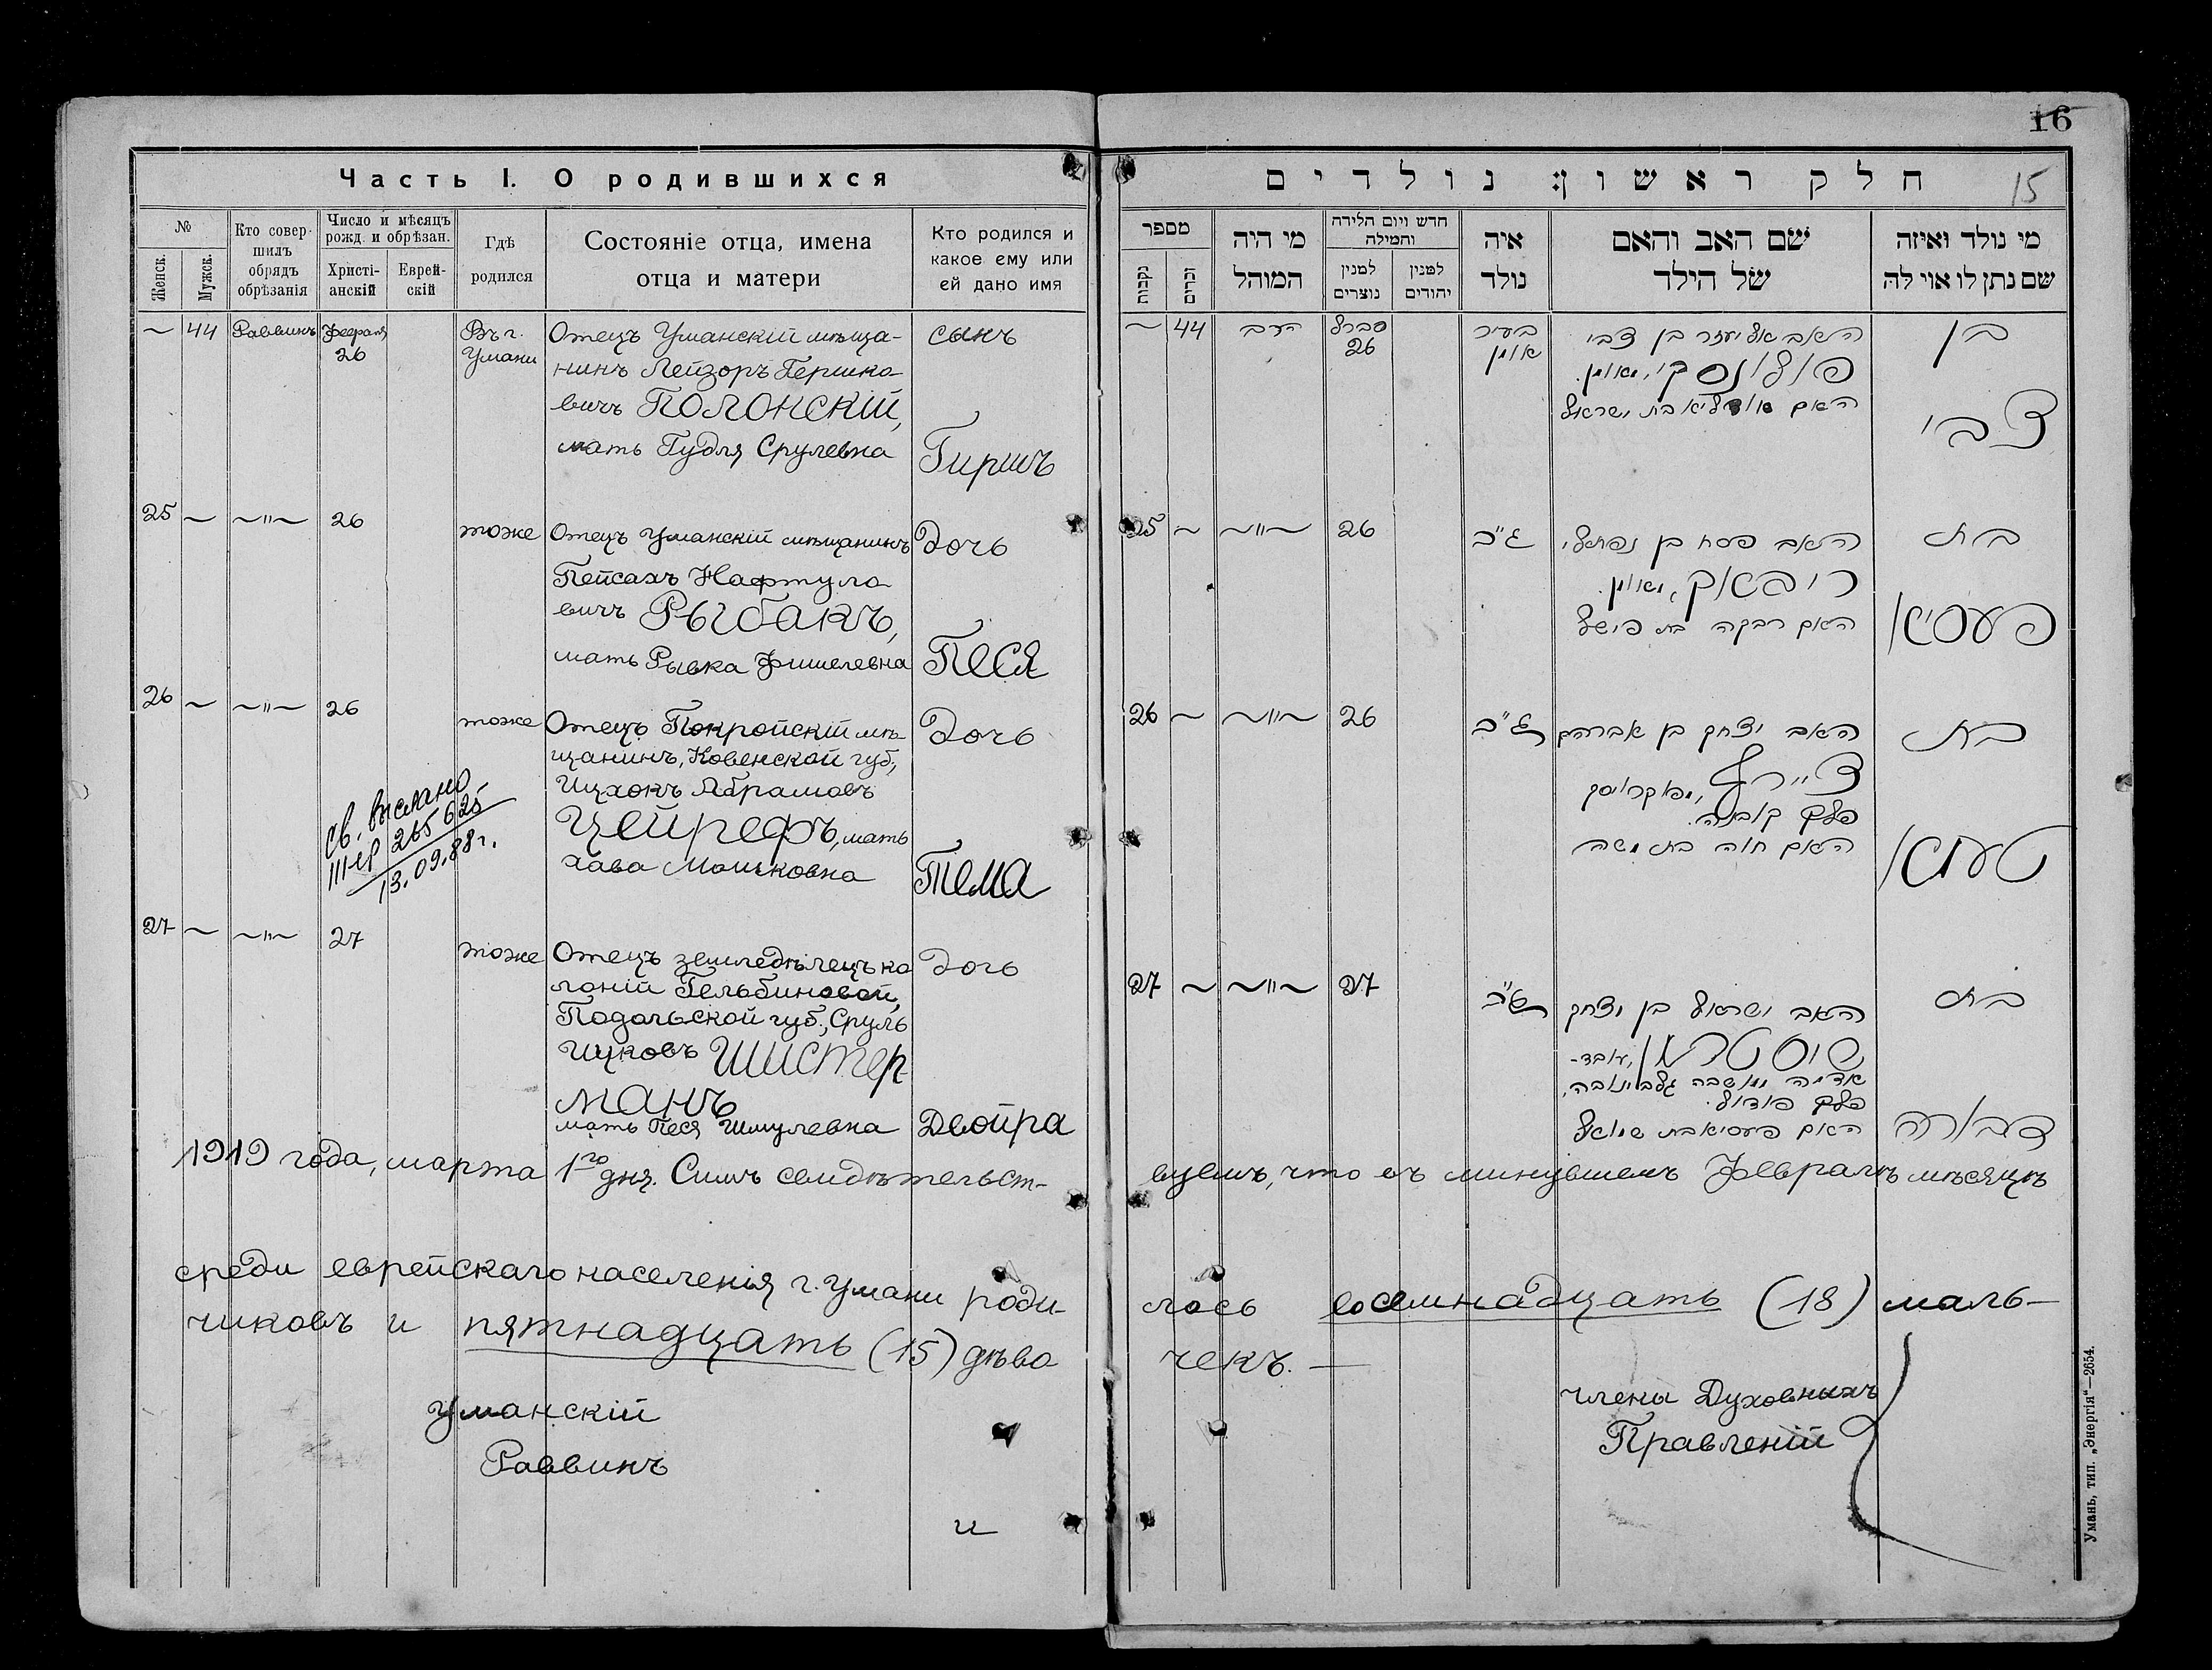 Часть I. О родившихся
№
Женск.
Мужск.
Кто совер-
шилъ
обрядъ
обрѣзанія
Число и мѣсяцъ
рожд. и обрѣзан.
Христі-
анскій
Еврей-
скій
Гдѣ
родился
Состояніе отца, имена
отца и матери
Кто родился и
какое ему или
ей дано имя
~ 44 Раввинъ Февраля
26
Въ г.
Умани
Отецъ Уманскій мѣща-
нинъ Лейзоръ Гершко-
вичъ Полонскій,
мать Гудля Срулевна
сынъ
Гиршъ
25 ~ ~"~ 26 тоже
Отецъ Уманскій мѣщанинъ
Пейсахъ Нафтуло
вичъ Рыбакъ,
мать Рывка Фишелевна
Дочь
Песя
26 ~ ~"~ 26 тоже
Отецъ Покройскій мѣ-
щанинъ, Ковенской губ.,
Ицхокъ Абрамовъ
Цейрефъ, мать
Хава Мошковна
Дочь
Тема
св. выслано
III-ЕР 265625
13.09.88 г.
27 ~ ~"~ 27 тоже
Отецъ земледѣлецъ ко
лоній Гельбиновой,
Подольской губ., Сруль
Ицковъ Шистер-
манъ
мать Песя Шмулевна
дочь
Двойра
1919 года, марта 1го дня. Симъ свидѣтельст-
среди еврейскаго населенія г. Умани роди-
чиковъ и пятнадцать (15) дѣво
Уманскій
Раввинъ
и
16
15
חלק ראשון: נולדים
מספר
נקבות
זכרים
מי היה
המוהל
חדש ויום הלידה
והמילה
למנין
נוצרים
למנין
יהודים
איה
נולד
שם האב והאם
של הילד
מי נולד ואיזה
שם נתן לו או לה
~ 44 הרב
פברל
26
בעיר
אומן
האב אליעזר בן צבי
פולונסקי, מאומן.
האם אודליא בת ישראל
בן
צבי
25 ~ ~"~ 26 ג"כ
האב פסח בן נפתלי
ריבאק, מאומן.
האם רבקה בת פישל
בת
פעסיא
26 ~ ~"~ 26 ג"כ
האב יצחק בן אברהם
ציירף,
פלך קובנה.
האם חוה בת משה
בת
טעמא
27 ~ ~"~ 27 ג"כ
האב ישראל בן יצחק
שיסטרמאן, עובד-
אדמה ממושבה געלבינובה,
פלך פודול.
האם פעסיא בת שמואל
בת
דבורה
вуемъ, что въ минувшемъ Февралѣ мѣсяцѣ
лось восемнадцать (18) маль-
чекъ. —
члены Духовныхъ
Правленій
Умань, тип. „Энергія“—2654.